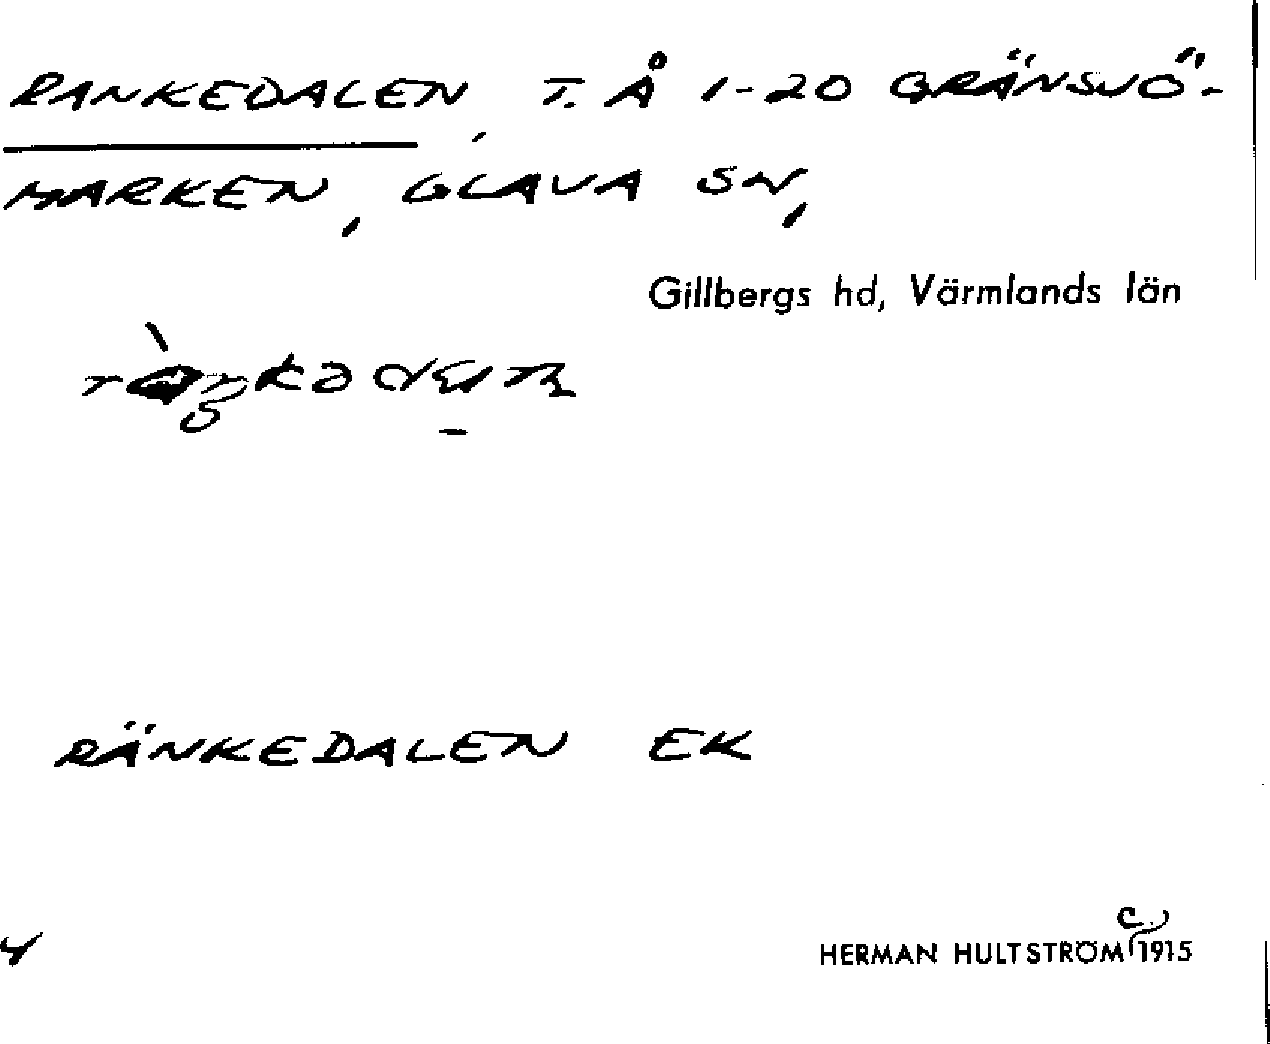 RANKEDALEN, T. Å 1-20 GRÄNSJÖ-
MARKEN, GLAVA SN,
Gillbergs hd, Värmlands län
RÄNKEDALEN EK
4
HERMAN HULTSTRÖM (C.) 1915